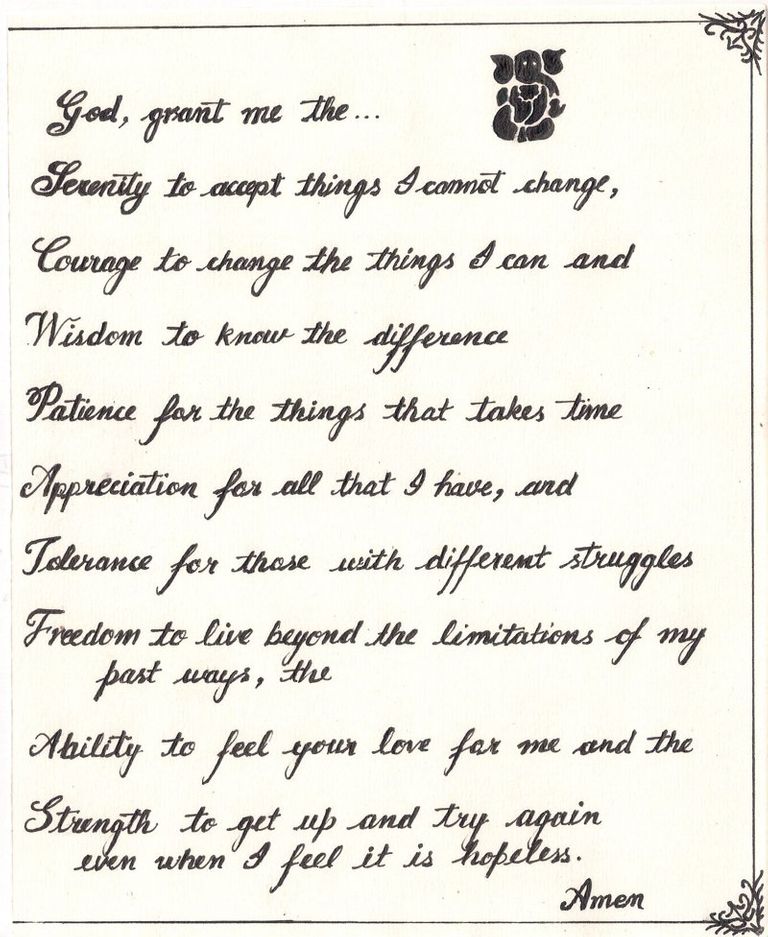 God, grant me the...
Serenity to accept things I cannot change,
Courage to change the things I can and
Wisdom to know the difference
Patience for the things that takes time
Appreciation for all that I have, and
Tolerance for those with different struggles
Freedom to live beyond the limitations of my
past ways, the
Ability to feel your love for me and the
Strength to get up and try again
even when I feel it is hopeless.
Amen